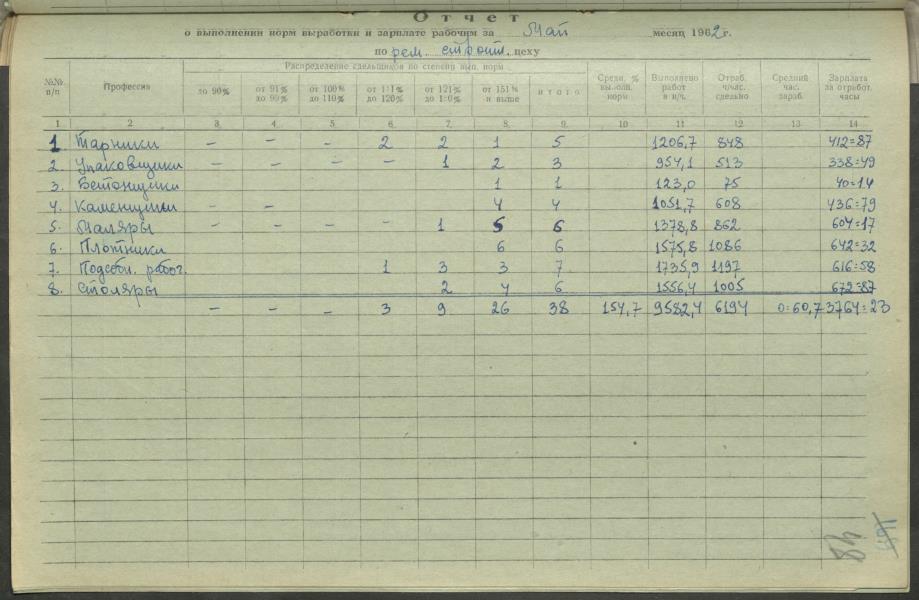 Отчет
о выполнении норм выработки и зарплате рабочим за Май месяц 1962 г.
по рем. строит. цеху
№№ п/п Профессия Распределение сдельщиков по степени вып. норм Средн. % выполн. норм Выполнено работ в н/ч. Отраб. ч/час. сдельно Средний час. зараб. Зарплата за отработ. часы
до 90% от 91% до 99% от 100% до 110% от 111% до 120% от 121% до 150% от 151% и выше итого
1 2 3 4 5 6 7 8 9 10 11 12 13 14
1 Тарники – – – 2 2 1 5 1206,7 848 412=87
2. Упаковщики – – – – 1 2 3 954,1 513 338=49
3. Бетонщики 1 1 123,0 75 40=14
4. Каменщики – – 4 4 1051,7 608 436=79
5. Маляры – – – – 1 5 6 1378,8 862 604=17
6. Плотники 6 6 1575,8 1086 642=32
7. Подсобн. работ. 1 3 3 7 1735,9 1197 616=58
8. Столяры 2 4 6 1556,4 1005 672=87
– – – 3 9 26 38 154,7 9582,4 6194 0=60,7 3764=23